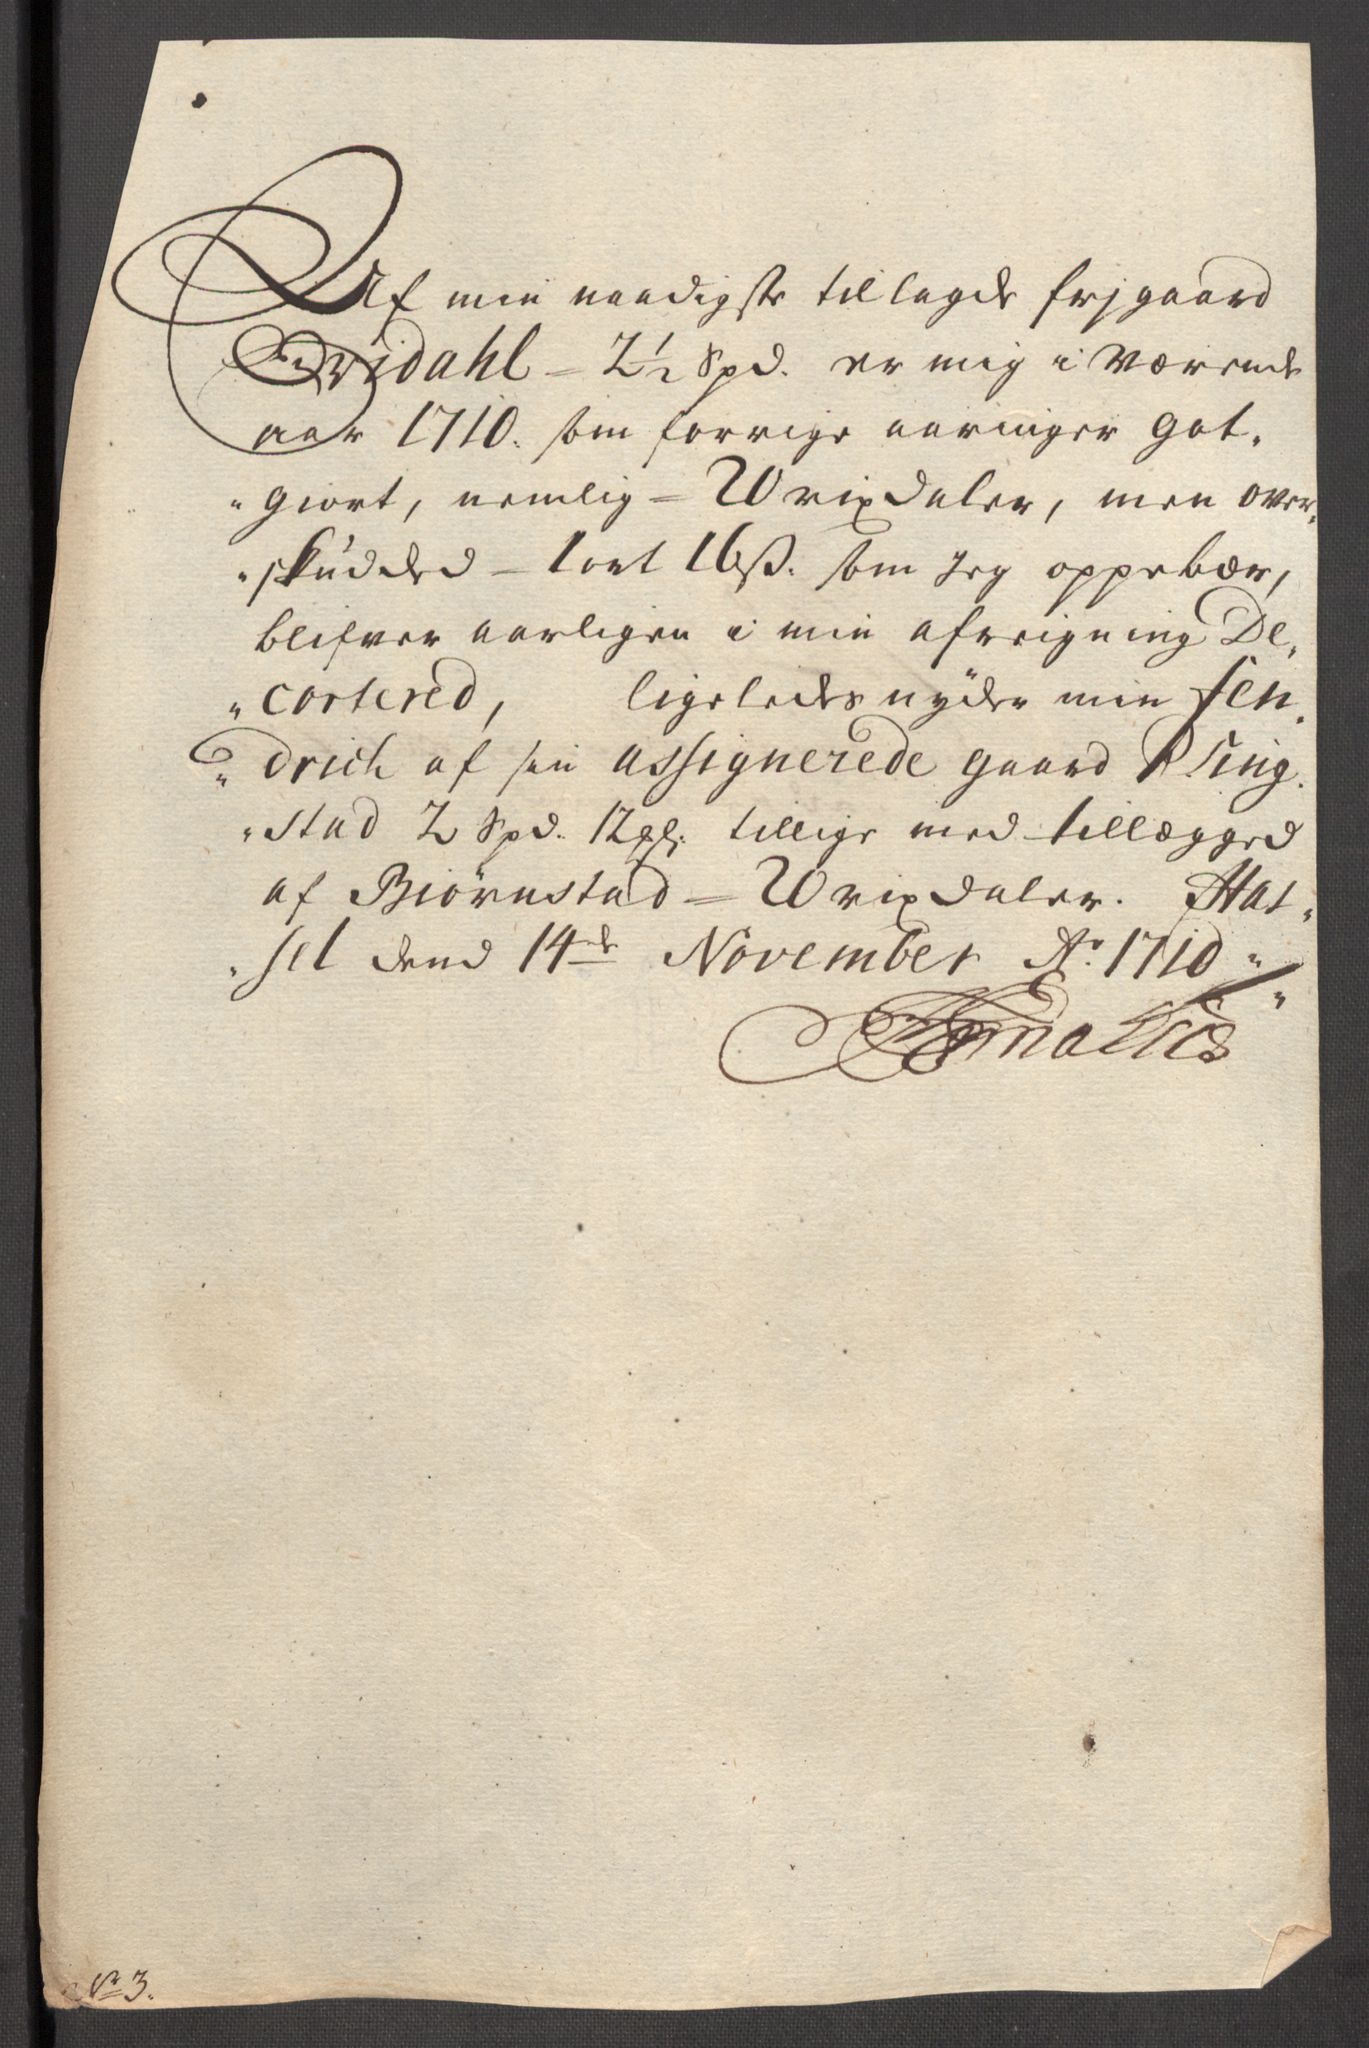 Af min naadigste tillagde frjgaard
Qvidahl - 2½ Spd. er mig i værende
aar 1710. som forrige aaringer got„
„giort, nemlig = 10 rixdaler, men over„
„skudded - 1 ort 16 ß. som Jeg oppebær,
blifver aarligen i min afreigning De„
„corterred, ligeledes nyder min Fen„
„drich af sin assignerede gaard Ring„
„stad 2 Spd. 12 ₰: tillige med tillægged
af Biörnstad = 10 rixdaler. Has„
„sel dend 14de November Ao. 1710„

No 3.